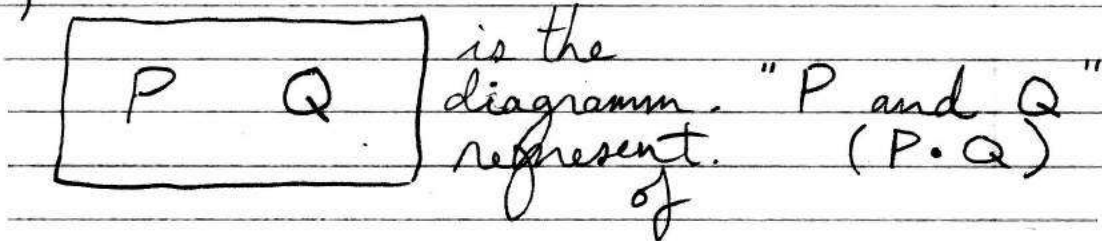 )
P Q
is the
diagramm. "P and Q"
represent. (P•Q)
of